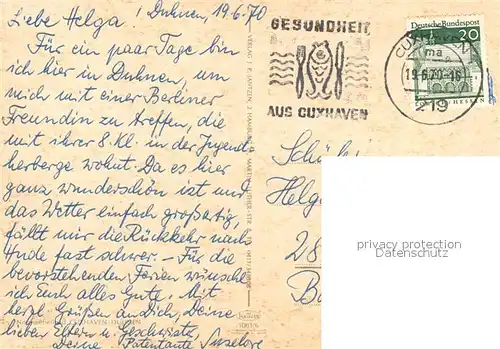 Liebe Helga! Duhnen, 19.6.70
Für ein paar Tage bin
ich hier in Duhnen, um
mich mit einer Berliner
Freundin zu treffen, die
mit ihrer 8. Kl. in der Jugend-
herberge wohnt. Da es hier
ganz wunderschön ist und
das Wetter einfach großartig,
fällt mir die Rückkehr nach
Hude fast schwer – Für die
bevorstehenden Ferien wünsche
ich Euch alles Gute. Mit
herzl. Grüßen an Dich, Deine
lieben Eltern u. Geschwister
Deine Patentante
GESUNDHEIT
AUS CUXHAVEN
Deutsche Bundespost
20
19.6.70-16
219
Helge
28
privacy protection
Datenschutz